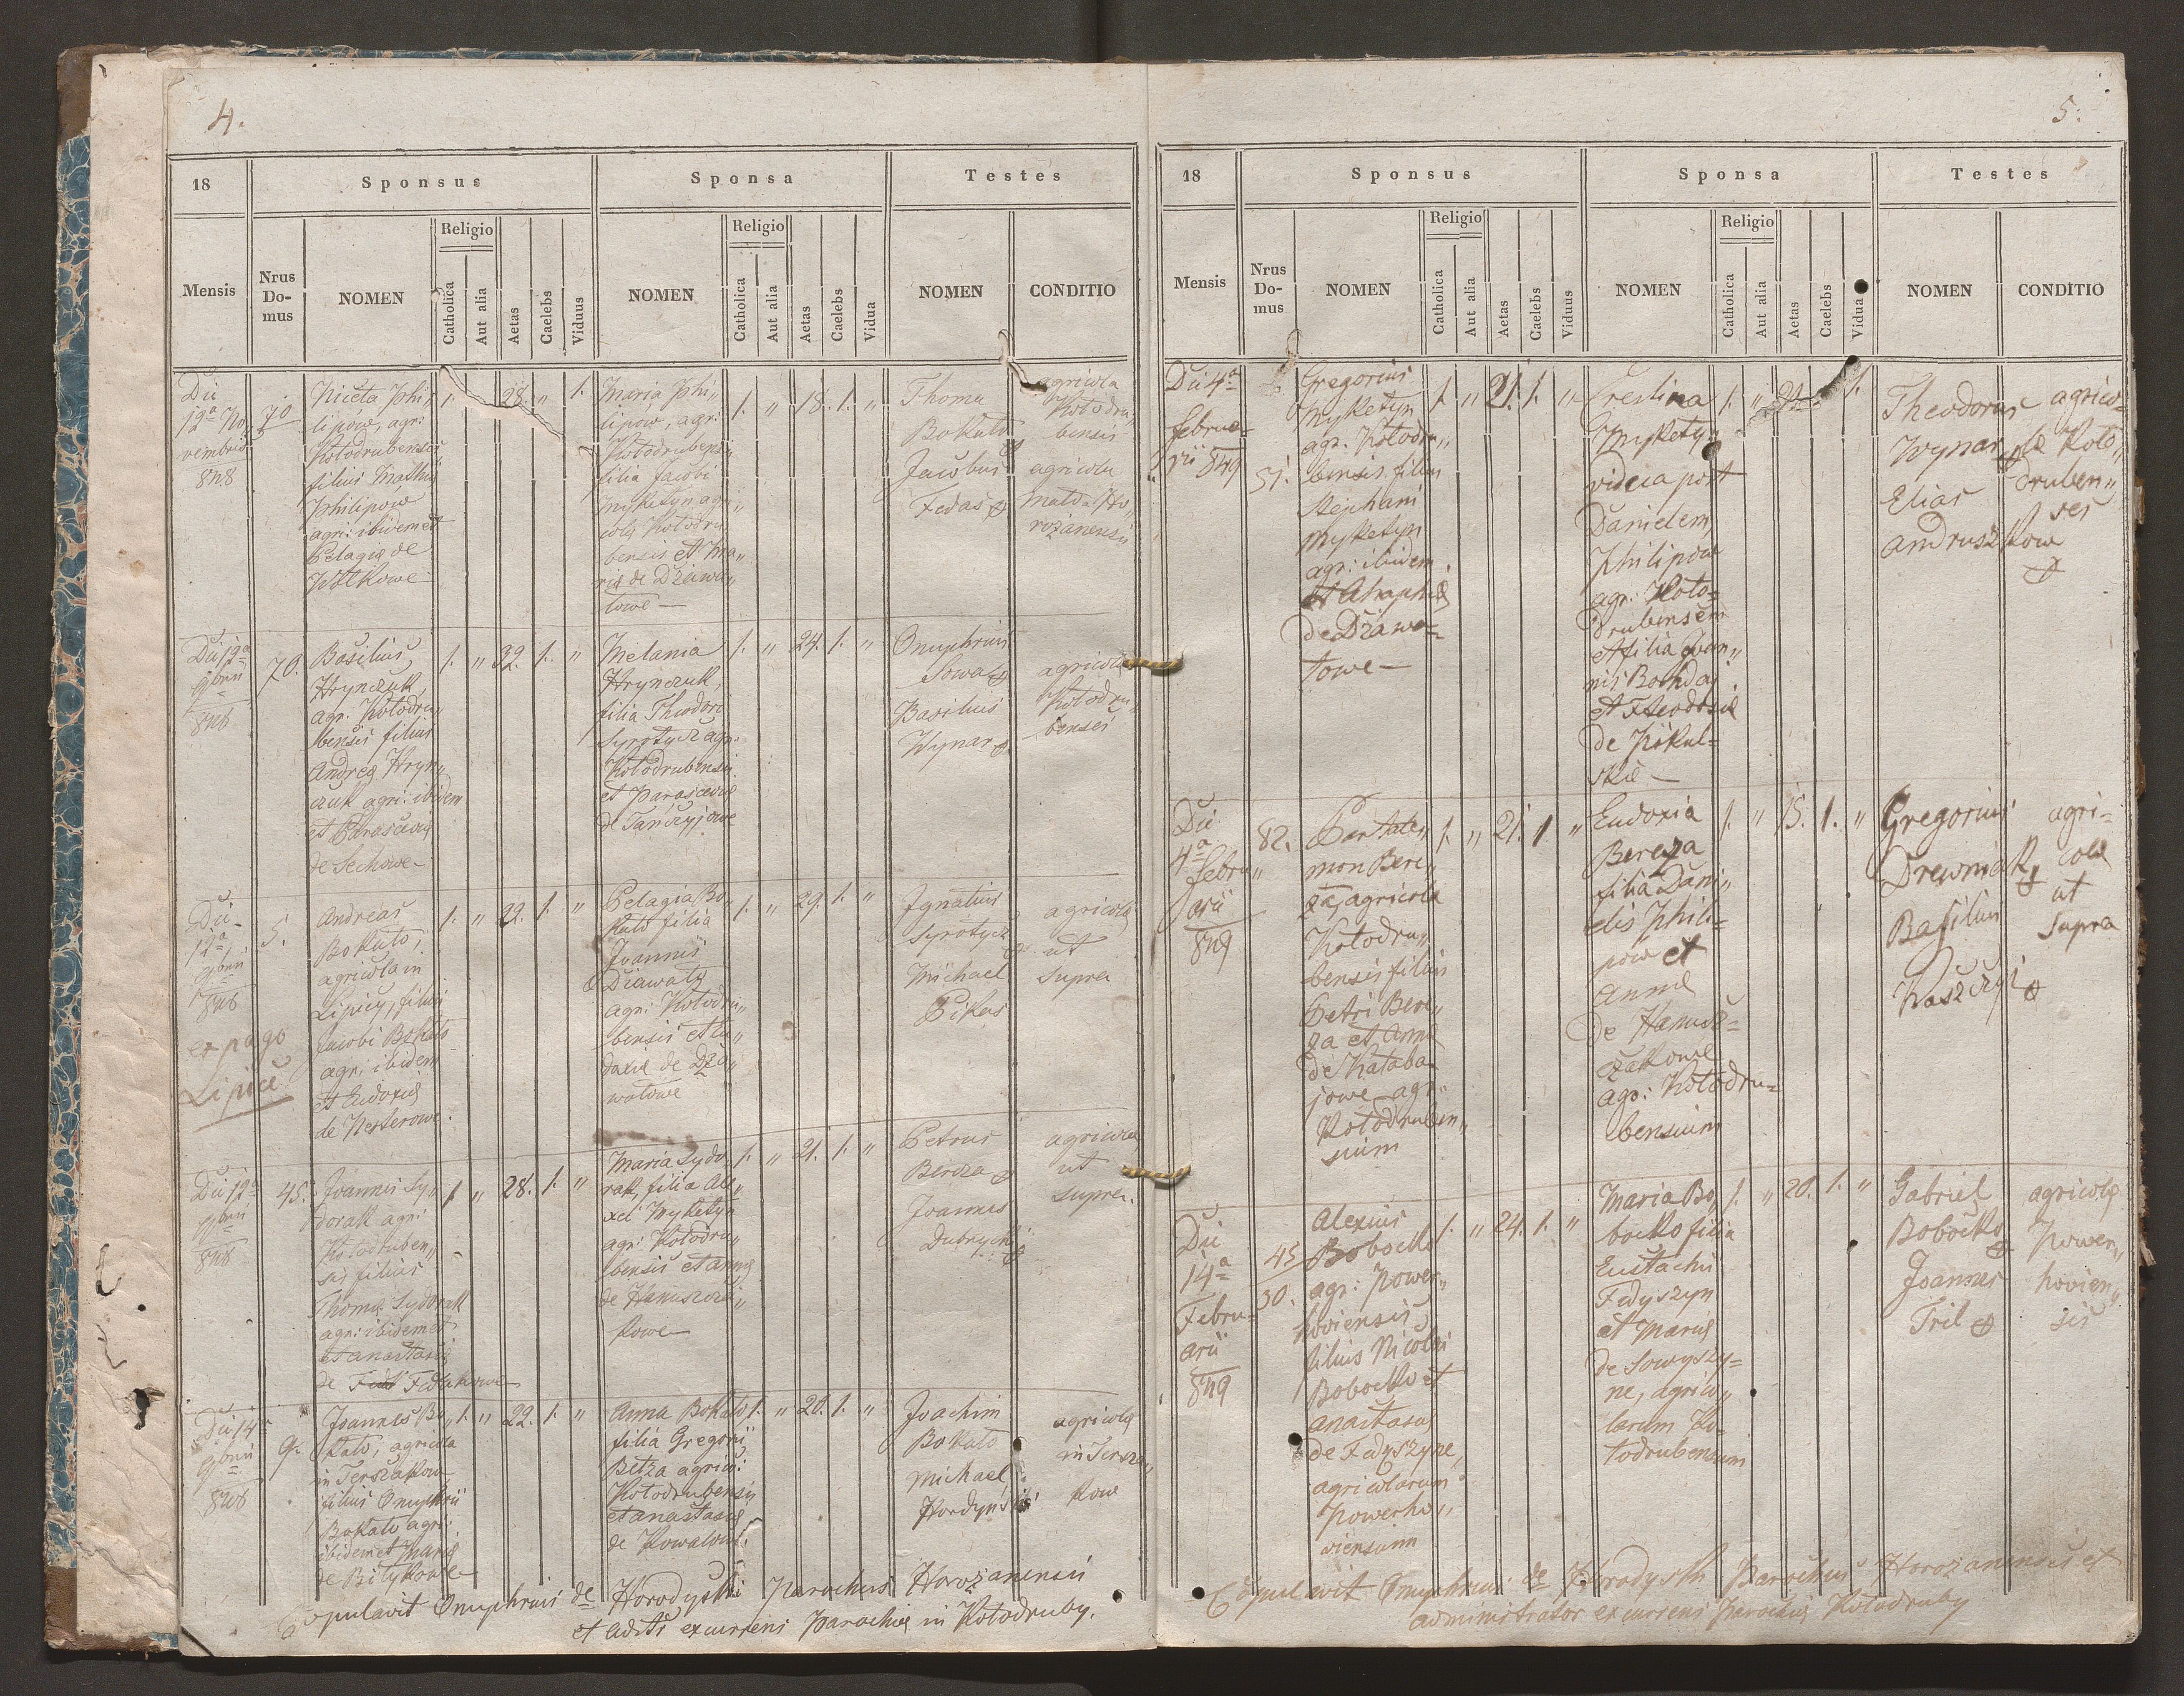 4.
18
Sponsus
Sponsa
Testes
Mensis
Nrus Do-mus
NOMEN
Religio
Catholica
Aut alia
Aetas
Caelebs
Viduus
NOMEN
Religio
Catholica
Aut alia
Aetas
Caelebs
Vidua
NOMEN
CONDITIO
Die
12ª No,,
vembris
848
70
Niceta Phi,,
lipow, agr:
Kotodrubensis
filius
Philipow
agr: ibidem et
Pelagiæ de
Wotkowe
1.
28.
"
1.
Maria Phi,,
lipow, agr:
Kotodrubens,,
filia Jacobi
Myketyn agri,,
colæ Kotodru,,
bensis et Ma,,
riæ de Dziawa,,
towe —
1. " 18. 1. "
Thoma
Bokato
Jacobus
Fedas
agricola
Kotodru,,
bensis
agricola
Mato-Ho,,
rozanensis
Die 12ª
9bris
848
70.
Basilius
Hrynczuk,
agr. Kotodru,,
bensis filius
Andreæ Hryn,,
czuk agri: ibidem
et Parasceviæ
de Sechowe —
1. " 32. 1. "
Melania
Hrynczuk,
filia Theodori
Syrotycz agr.
Kotodrubensis
et Parasceviæ
de Tanczyjowe
1. " 24. 1. "
Onuphrius
Sowa
Basilius
Wynar
agricolæ
Kotodru,,
benses
Die
12ª
9bris
848
ex pago
Lipice
5.
Andreas
Bokato,
agricola in
Lipicy, filius
Jacobi Bokato
agr: ibidem
et Eudoxiæ
de Nesterowe.
1. " 22. 1. "
Pelagia Bo,,
kato filia
Joannis
Dziawaty
agr: Kotodru,,
bensis et Eu,,
doxiæ de Dzia,,
watowe
1. " 29. 1. "
Ignatius
Syrotycz
Michael
Pikas
agricolæ
ut
supra
Die 12ª
9bris
848
45.
Joannes Sy,,
dorak agri:
Kotodruben,,
sis filius
Thomæ Sydorak
agr: ibidem et
et Anastasiæ
de Fedakowe
1. " 28. 1. "
Maria Sydo,,
rak, filia Ale,,
xei Myketyn
agr: Kotodru,,
bensis et Annæ
de Hanuszcza,,
kowe —
1. " 21. 1. "
Petrus
Bereza
Joannes
Dubrycki
agricolæ
ut
supra.
Die 14ª
9bris
848
9.
Joannes Bo,,
kato, agricola
in Terszakow
filius Onuphrii
Bokato agri:
ibidem et Mariæ
de Bitykowe —
1. " 22. 1. "
Anna Bokato
filia Gregorii
Bitza agrico:
Kotodrubensis
et Anastasiæ
de Kowalowe.
1. " 20. 1. "
Joachim
Bokato
Michael
Hordynski
agricolæ
in Tersza,,
kow
Copulavit Onuphrius de Horodyski Parochus Horozanensis
et adtor excurrens Parochiæ in Kotodruby.
5.
18
Sponsus
Sponsa
Testes
Mensis
Nrus Do-mus
NOMEN
Religio
Catholica
Aut alia
Aetas
Caelebs
Viduus
NOMEN
Religio
Catholica
Aut alia
Aetas
Caelebs
Vidua
NOMEN
CONDITIO
Die 4ª
Februa-
rii 849
51.
Gregorius
Myketyn
agr. Kotodru,,
bensis filius
Stephani
Myketyn
agr: ibidem
et Ahaphiæ
de Dziawa-
towe —
1. " 21. 1. "
Crestina
Myketyn
vidua post
Danielem
Philipow
agr: Koto-
drubensem
et filia Joan,,
nis Bochdaj
et Theodosiæ
de Pikul-
skie —
1. "
1.
Theodorus
Wynar
Elias
Andruszkow
agrico-
læ Koto,,
druben,,
ses
Die
4ª
Febru,,
arii
849
82.
Pantale,,
mon Bere,,
za, agricola
Kotodru,,
bensis filius
Petri Bere,,
za et Annæ
de Kataba-
jowe agr:
Kotodruben,,
sium
1. " 21. 1 "
Eudoxia
Bereza
filia Dani,,
elis Phili-
pow et
Annæ
de Hanusz-
czakowe
agr: Kotodru-
bensium
1. " 15. 1. "
Gregorius
Drewniak
Basilius
agri-
colæ
ut
supra
Die
14ª
Febru-
arii
849
45
30.
Alexius
Bobocko
agr: Power,,
hoviensis
filius Nicolai
Bobocko et
Anastasiæ
de Fedyszyne,
agricolarum
Powerho,,
viensium
1. " 24. 1. "
Maria Bo,,
bocko filia
Eustachii
Fedyszyn
et Mariæ
de Sowyszy-
ne, agrico,,
larum Ko-
todrubensium
1. " 20. 1. "
Gabriel
Bobocko
Joannes
Tril
agricolæ
Power,,
hovien,,
sis
Copulavit Onuphrius de Horodyski Parochus Horozanensis et
administrator excurrens Parochiæ Kotodruby